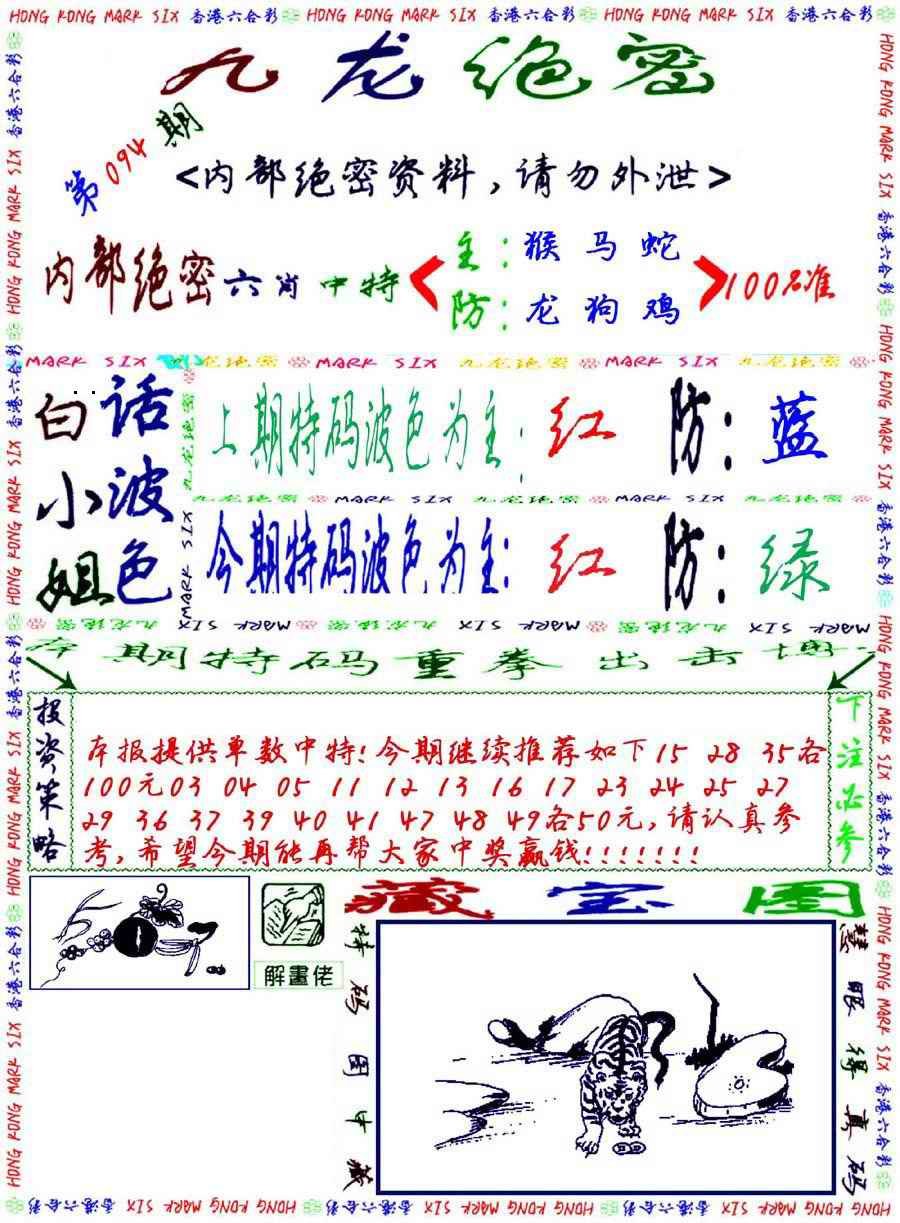 HONG KONG MARK SIX 香港六合彩 HONG KONG MARK SIX 香港六合彩 HONG KONG MARK SIX 香港六合彩
九龙绝密
第094期
<内部绝密资料,请勿外泄>
内部绝密六肖中特
主:猴马蛇
防:龙狗鸡
100%准
MARK SIX 九龙绝密 MARK SIX 九龙绝密 MARK SIX 九龙绝密
白话
小波
姐色
上期特码波色为主:红 防:蓝
九龙绝密 MARK SIX 九龙绝密 MARK SIX 九龙绝密
今期特码波色为主:红 防:绿
九龙绝密 MARK SIX 九龙绝密 MARK SIX 九龙绝密 MARK SIX
期特码重拳出击
投资策略
本报提供单数中特!今期继续推荐如下15 28 35各
100元03 04 05 11 12 13 16 17 23 24 25 27
29 36 37 39 40 41 47 48 49各50元,请认真参
考,希望今期能再帮大家中奖赢钱!!!!!!!
下注必参
解畫佬
藏宝图
特码图中藏
慧眼得真码
HONG KONG MARK SIX 香港六合彩 HONG KONG MARK SIX 香港六合彩 HONG KONG MARK SIX 香港六合彩